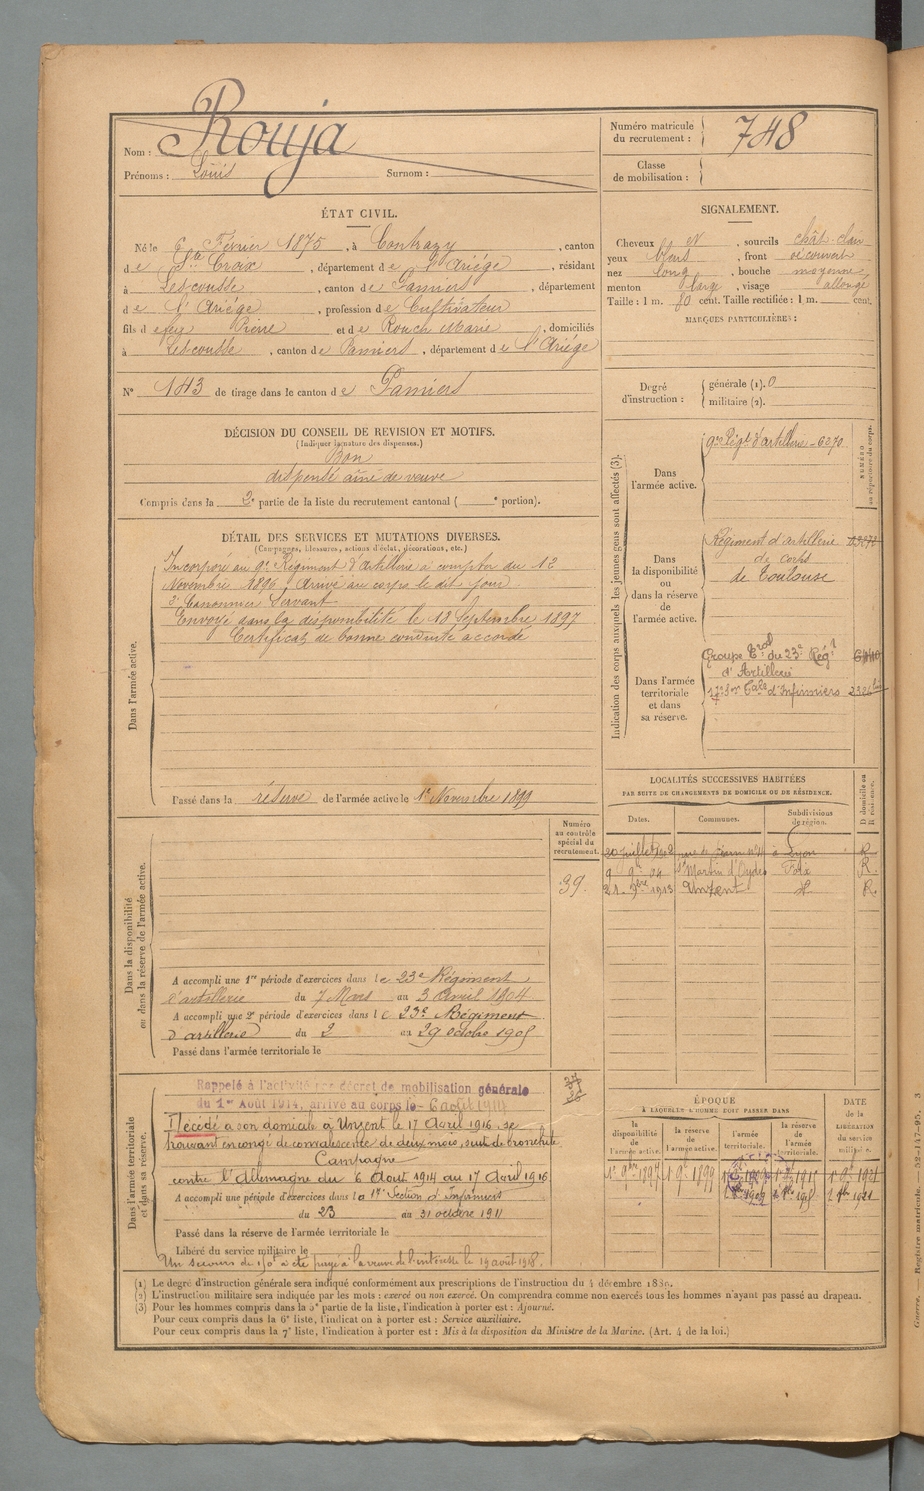 Nom : Rouja
Prénoms : Louis Surnom :
Numéro matricule du recrutement : 748
Classe de mobilisation :
ÉTAT CIVIL.
Né le 6 Février 1875, à Contrazy, canton
de Ste Croix, département de l'Ariége, résidant
à Lescousse, canton de Pamiers, département
de l'Ariége, profession de Cultivateur
fils de feu Pierre et de Rouch Marie, domiciliés
à Lescousse, canton de Pamiers, département de l'Ariége
N° 143 de tirage dans le canton de Pamiers
SIGNALEMENT.
Cheveux N, sourcils chât-clair
yeux bleus, front découvert
nez long, bouche moyenne
menton large, visage allongé
Taille : 1 m. 80 cent. Taille rectifiée : 1 m. cent.
MARQUES PARTICULIÈRES :
Degré d'instruction : générale (1). 0
militaire (2).
DÉCISION DU CONSEIL DE REVISION ET MOTIFS.
(Indiquer la nature des dispenses.)
Bon
dispensé aîné de veuve
Compris dans la 2e partie de la liste du recrutement cantonal ( e portion).
DÉTAIL DES SERVICES ET MUTATIONS DIVERSES.
(Campagnes, blessures, actions d'éclat, décorations, etc.)
Dans l'armée active.
Incorporé au 9e Régiment d'Artillerie à compter du 12
Novembre 1896, Arrivé au corps le dit jour
2e Canonnier Servant
Envoyé dans la disponibilité le 18 Septembre 1897
Certificat de bonne conduite accordé
Passé dans la réserve de l'armée active le 1er Novembre 1899
Indication des corps auxquels les jeunes gens sont affectés (3).
NUMÉRO au répertoire du corps.
Dans l'armée active.
9e Régt d'artillerie - 6270
Dans la disponibilité ou dans la réserve de l'armée active.
Régiment d'artillerie
de corps
de Toulouse
Dans l'armée territoriale et dans sa réserve.
Groupe Trial du 23e Régt
d'Artillerie
17e Son Tale d'Infirmiers
LOCALITÉS SUCCESSIVES HABITÉES
PAR SUITE DE CHANGEMENTS DE DOMICILE OU DE RÉSIDENCE.
Dates. Communes. Subdivisions de région. D domicile ou R résidence.
20 juillet 1902 à Lyon R
9 9bre 04 St Martin d'Oydes Foix R.
21 1913 Unzent R.
Dans la disponibilité ou dans la réserve de l'armée active.
Numéro au contrôle spécial du recrutement.
39.
A accompli une 1re période d'exercices dans le 23e Régiment
d'artillerie du 7 Mars au 3 Avril 1904
A accompli une 2e période d'exercices dans le 23e Régiment
d'artillerie du 2 au 29 octobre 1905
Passé dans l'armée territoriale le
Dans l'armée territoriale et dans sa réserve.
Rappelé à l'activité par décret de mobilisation générale
du 1er Août 1914, arrivé au corps le 6 août 1914
Décédé à son domicile à Unzent le 17 Avril 1916, se
trouvant en congé de convalescence de deux mois, suite de bronchite
Campagne
contre l'Allemagne du 6 Août 1914 au 17 Avril 1916
A accompli une période d'exercices dans la 17e Section d'Infirmiers
du 23 au 31 octobre 1911
Passé dans la réserve de l'armée territoriale le
Libéré du service militaire le
Un secours de 150f a été payé à la veuve de l'intéressé le 19 août 1918.
ÉPOQUE
À LAQUELLE L'HOMME DOIT PASSER DANS
la disponibilité de l'armée active. la réserve de l'armée active. l'armée territoriale. la réserve de l'armée territoriale.
DATE de la LIBÉRATION du service militaire.
(1) Le degré d'instruction générale sera indiqué conformément aux prescriptions de l'instruction du 4 décembre 1889.
(2) L'instruction militaire sera indiquée par les mots : exercé ou non exercé. On comprendra comme non exercés tous les hommes n'ayant pas passé au drapeau.
(3) Pour les hommes compris dans la 5e partie de la liste, l'indication à porter est : Ajourné.
Pour ceux compris dans la 6e liste, l'indication à porter est : Service auxiliaire.
Pour ceux compris dans la 7e liste, l'indication à porter est : Mis à la disposition du Ministre de la Marine. (Art. 4 de la loi.)
Guerre. — Registre matricule. — 52-147-95. 3